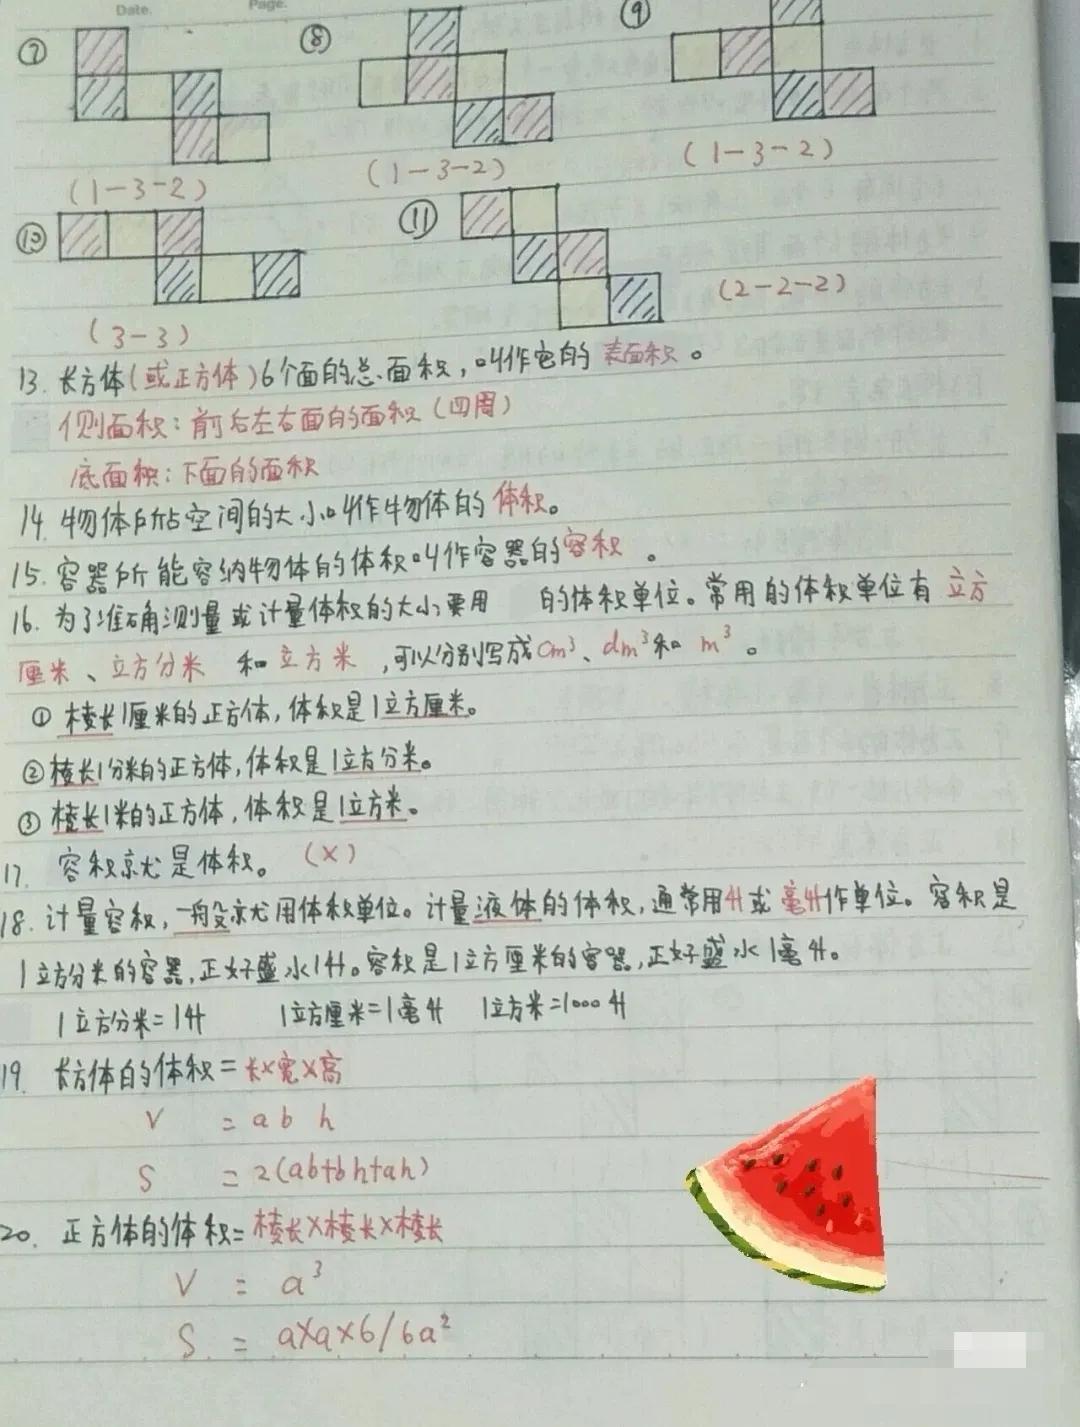 Date.
Page.
⑦ ⑧ ⑨
(1-3-2) (1-3-2) (1-3-2)
⑩ ⑪
(3-3) (2-2-2)
13. 长方体(或正方体)6个面的总面积,叫作它的 表面积。
侧面积:前后左右面的面积(四周)
底面积:下面的面积
14. 物体所占空间的大小叫作物体的 体积。
15. 容器所能容纳物体的体积叫作容器的容积 。
16. 为了准确测量或计量体积的大小,要用 的体积单位。常用的体积单位有 立方
厘米、立方分米 和 立方米 ,可以分别写成cm³、dm³和 m³ 。
① 棱长1厘米的正方体,体积是1立方厘米。
②棱长1分米的正方体,体积是1立方分米。
③ 棱长1米的正方体,体积是1立方米。
17. 容积就是体积。 (×)
18. 计量容积,一般就用体积单位。计量液体的体积,通常用升或毫升作单位。容积是
1立方分米的容器,正好盛水1升。容积是1立方厘米的容器,正好盛水1毫升。
1立方分米=1升 1立方厘米=1毫升 1立方米=1000升
19. 长方体的体积=长×宽×高
V = a b h
S = 2(ab+bh+ah)
20. 正方体的体积=棱长×棱长×棱长
V = a³
S = a×a×6/6a²